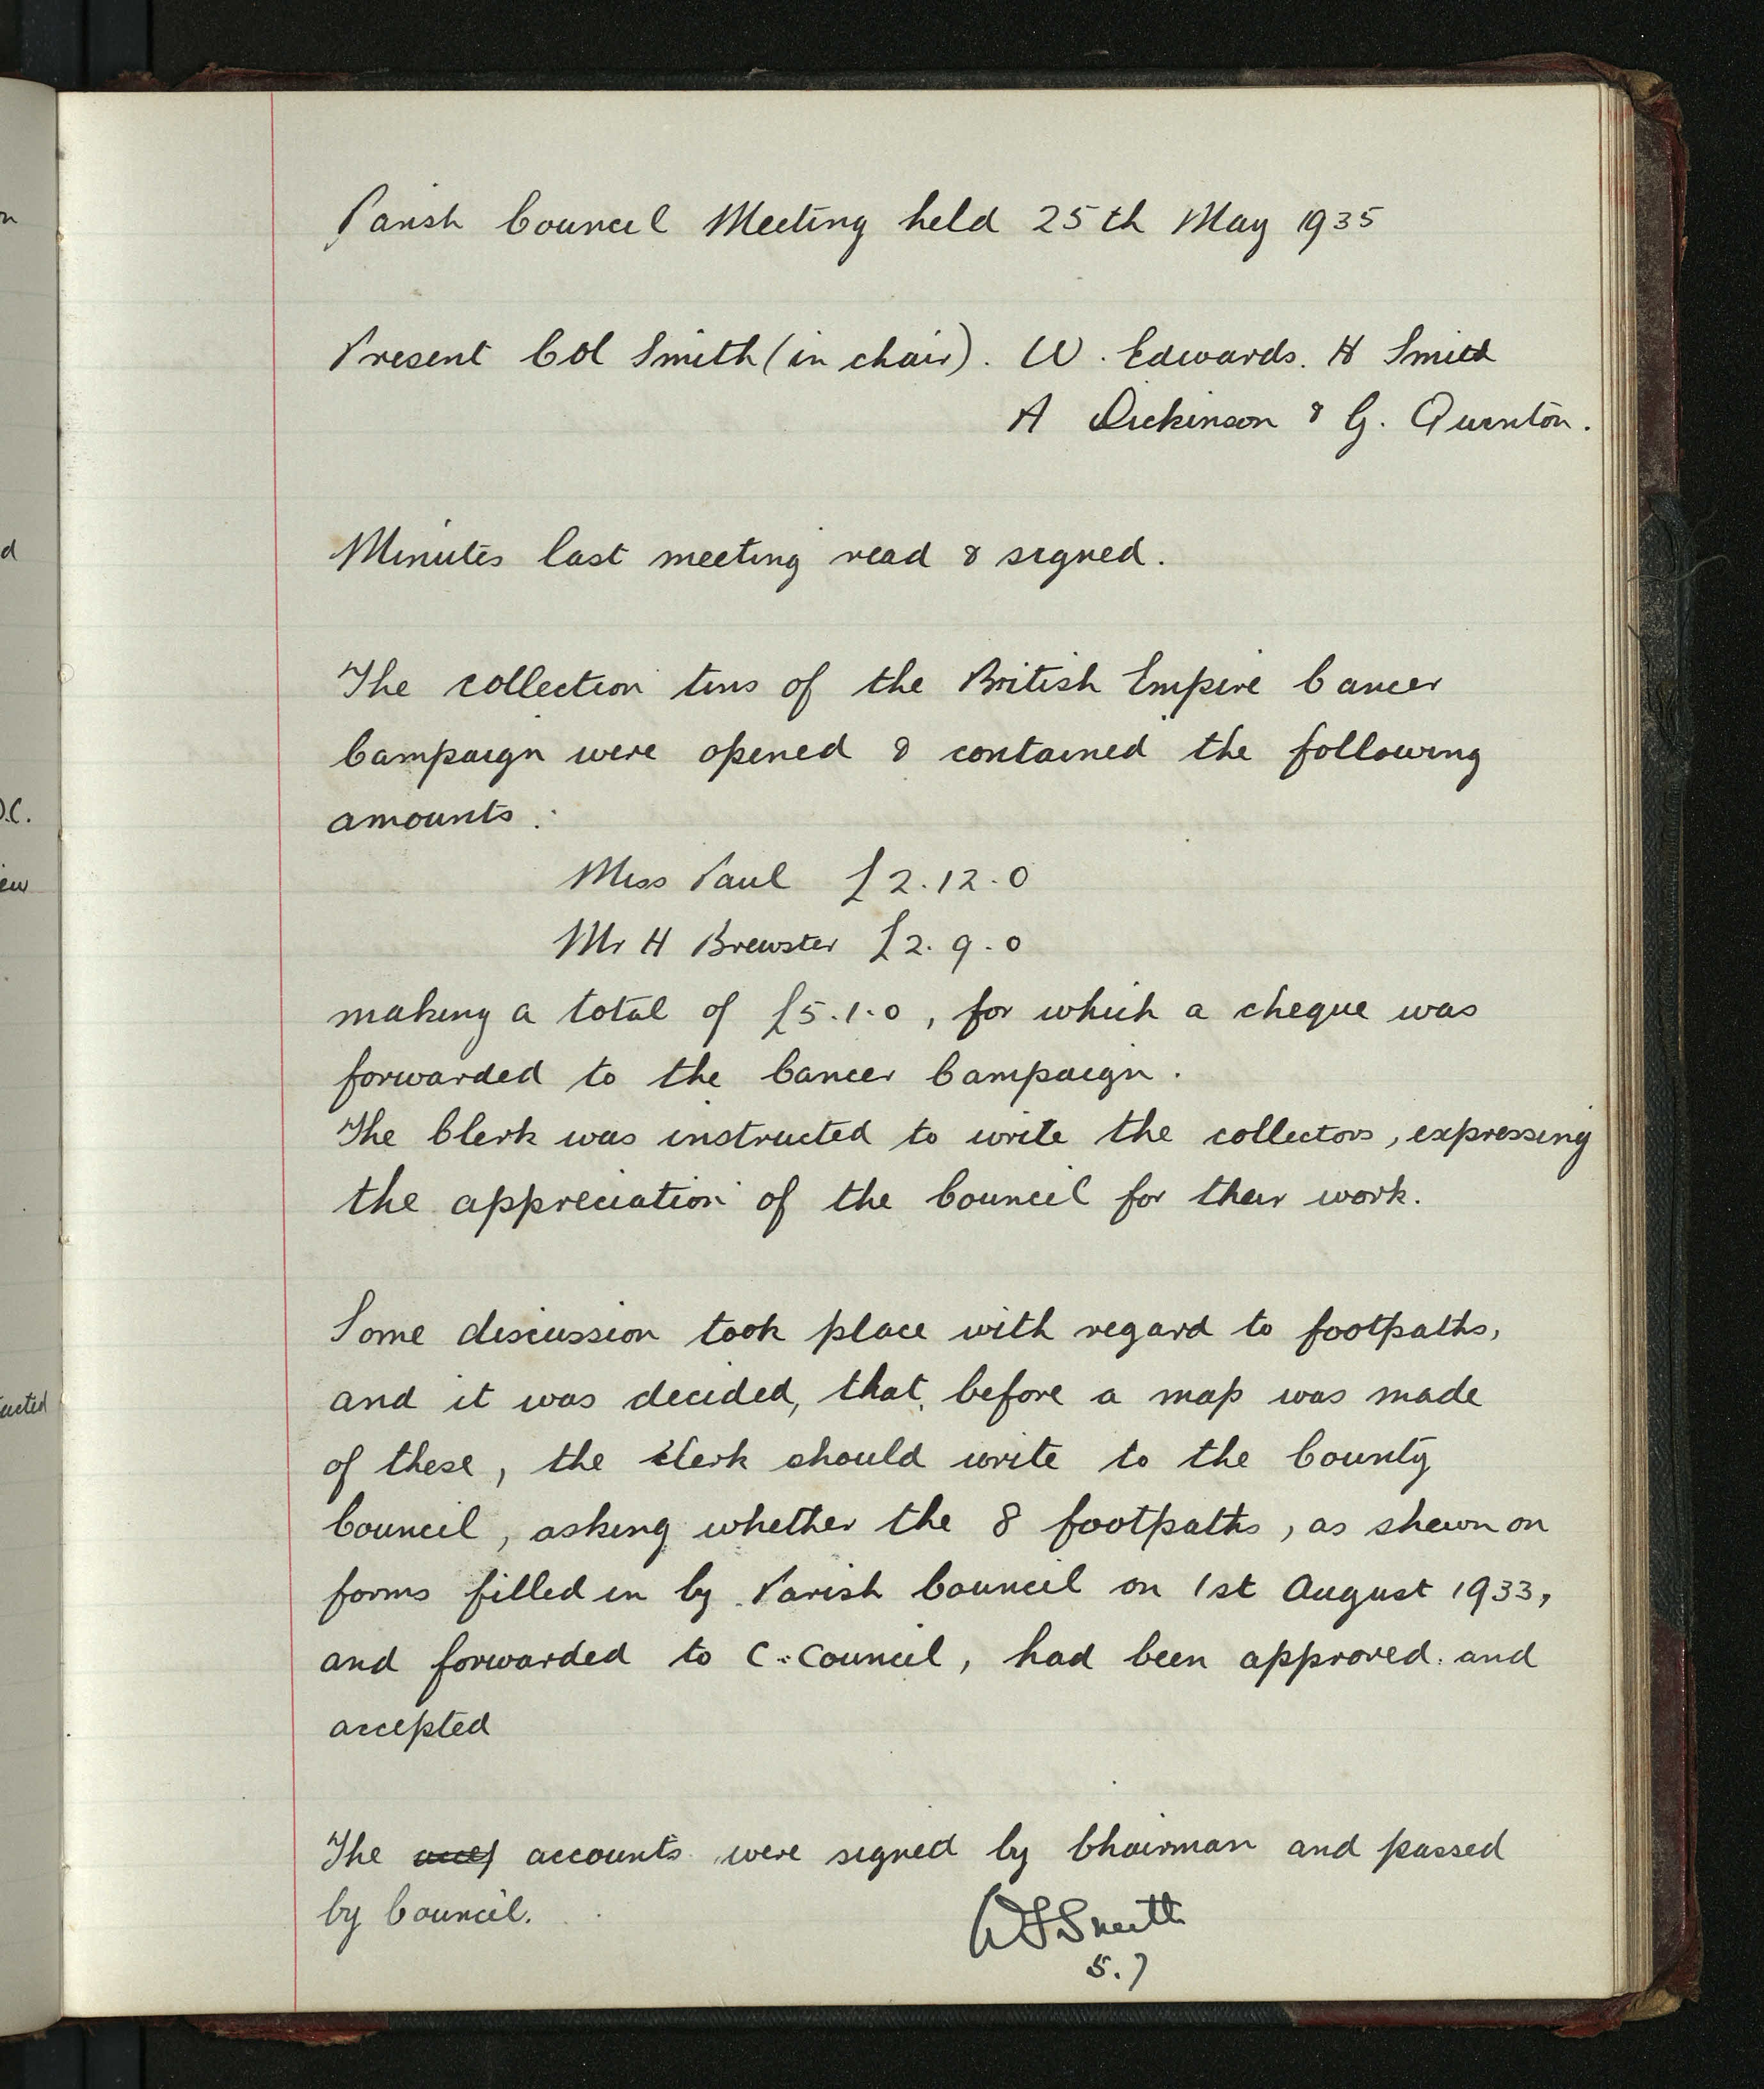 Parish Council Meeting held 25th May 1935
Present Col Smith (in chair). W. Edwards. H Smith
A Dickinson & G. Quinton.
Minutes last meeting read & signed.
The collection tins of the British Empire Cancer
Campaign were opened & contained the following
amounts :
Miss Paul £2.12.0
Mr H Brewster £2.9.0
making a total of £5.1.0, for which a cheque was
forwarded to the Cancer Campaign.
The Clerk was instructed to write the collectors, expressing
the appreciation of the Council for their work.
Some discussion took place with regard to footpaths,
and it was decided, that, before a map was made
of these, the Clerk should write to the County
Council, asking whether the 8 footpaths, as shewn on
forms filled in by Parish Council on 1st August 1933,
and forwarded to C. Council, had been approved and
accepted
The accounts were signed by Chairman and passed
by Council.
Smith
5.7